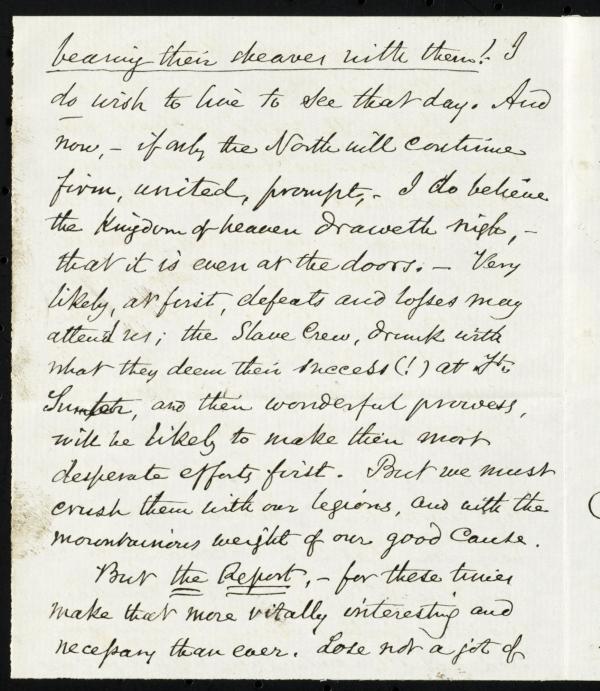 bearing their sheaves with them! I
do wish to live to see that day. And
now, – if only the North will continue
firm, united, prompt, – I do believe
the Kingdom of heaven draweth nigh, –
that it is even at the doors. – Very
likely, at first, defeats and losses may
attend us; the Slave Crew, drunk with
what they deem their success (!) at Ft.
Sumter, and their wonderful prowess,
will be likely to make their most
desperate efforts first. But we must
crush them with our legions, and with the
mountainous weight of our good Cause.
But the Report, – for these times
make that more vitally interesting and
necessary than ever. Lose not a jot of